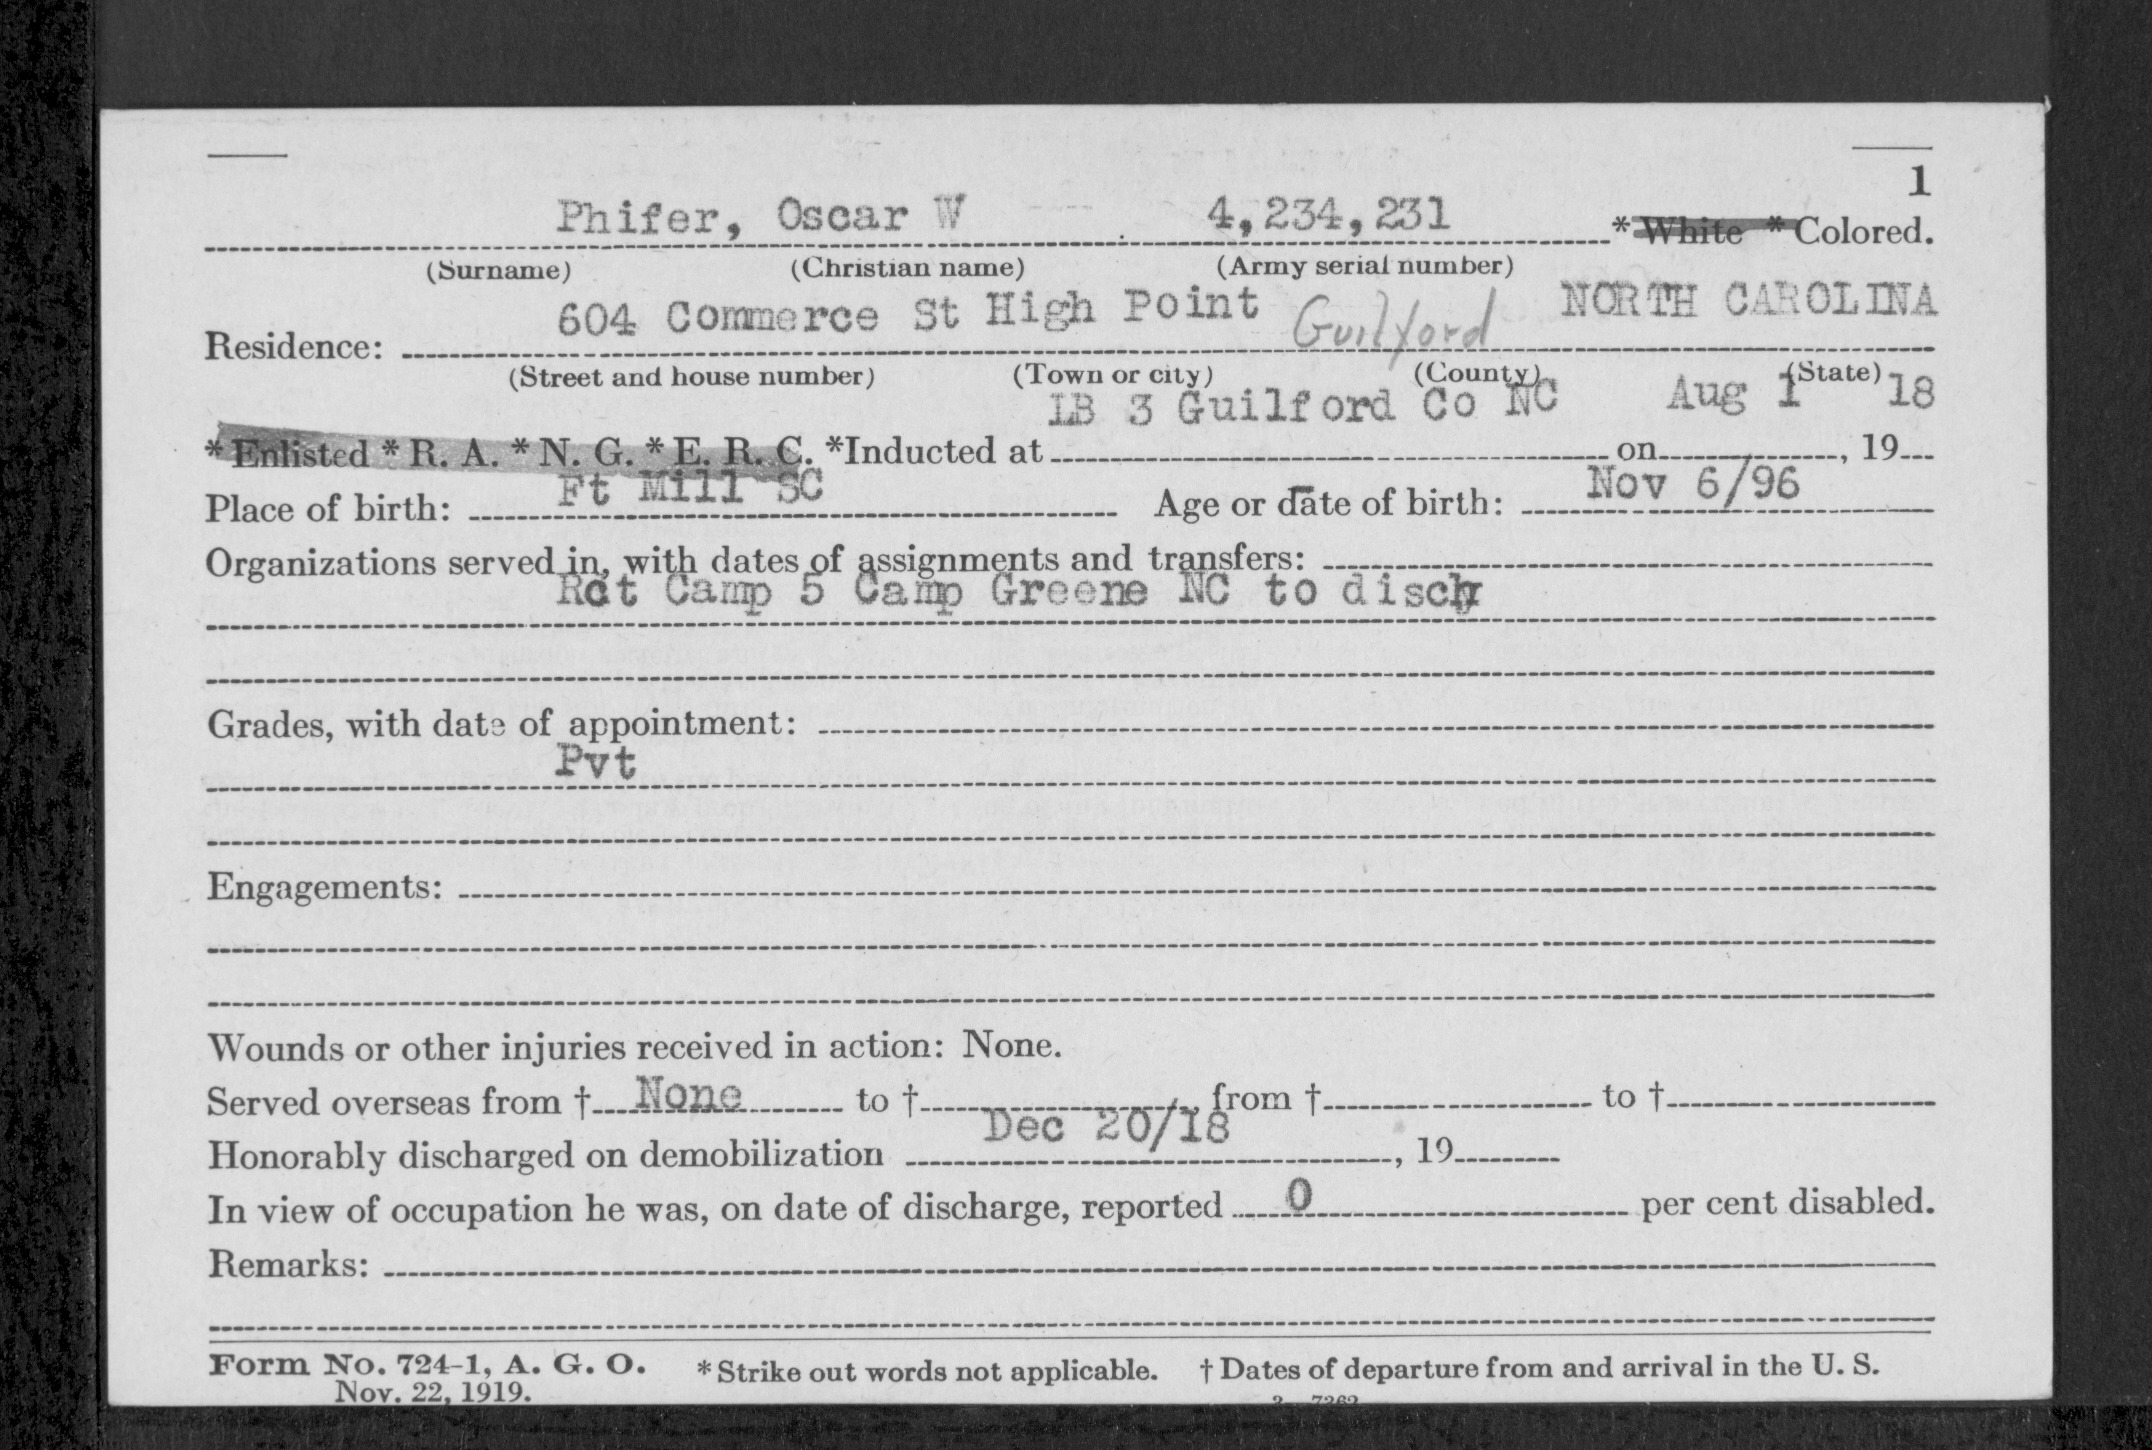 1
Phifer, Oscar W 4,234,231 *White *Colored.
(Surname) (Christian name) (Army serial number)
604 Commerce St High Point Guilford NORTH CAROLINA
Residence:
(Street and house number) (Town or city) (County) (State)
LB 3 Guilford Co NC Aug 1 18
*Enlisted *R. A. *N. G. *E. R. C. *Inducted at on , 19
Place of birth: Ft Mill SC Age or date of birth: Nov 6/96
Organizations served in, with dates of assignments and transfers:
Rct Camp 5 Camp Greene NC to disch
Grades, with date of appointment:
Pvt
Engagements:
Wounds or other injuries received in action: None.
Served overseas from † None to † , from † to †
Honorably discharged on demobilization Dec 20/18 , 19
In view of occupation he was, on date of discharge, reported 0 per cent disabled.
Remarks:
Form No. 724-1, A. G. O. *Strike out words not applicable. †Dates of departure from and arrival in the U. S.
Nov. 22, 1919.